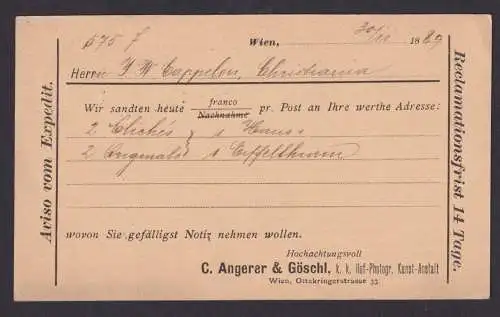 575 f
Wien, 30/XI 1889
Herrn J W Cappelen, Christiania
Wir sandten heute franco Nachnahme pr. Post an Ihre werthe Adresse:
2 Clichés
2 Originale Eiffelthurm
wovon Sie gefälligst Notiz nehmen wollen.
Hochachtungsvoll
C. Angerer & Göschl, k. k. Hof-Photogr. Kunst-Anstalt
Wien, Ottakringerstrasse 33.
Aviso vom Expedit.
Reclamationsfrist 14 Tage.